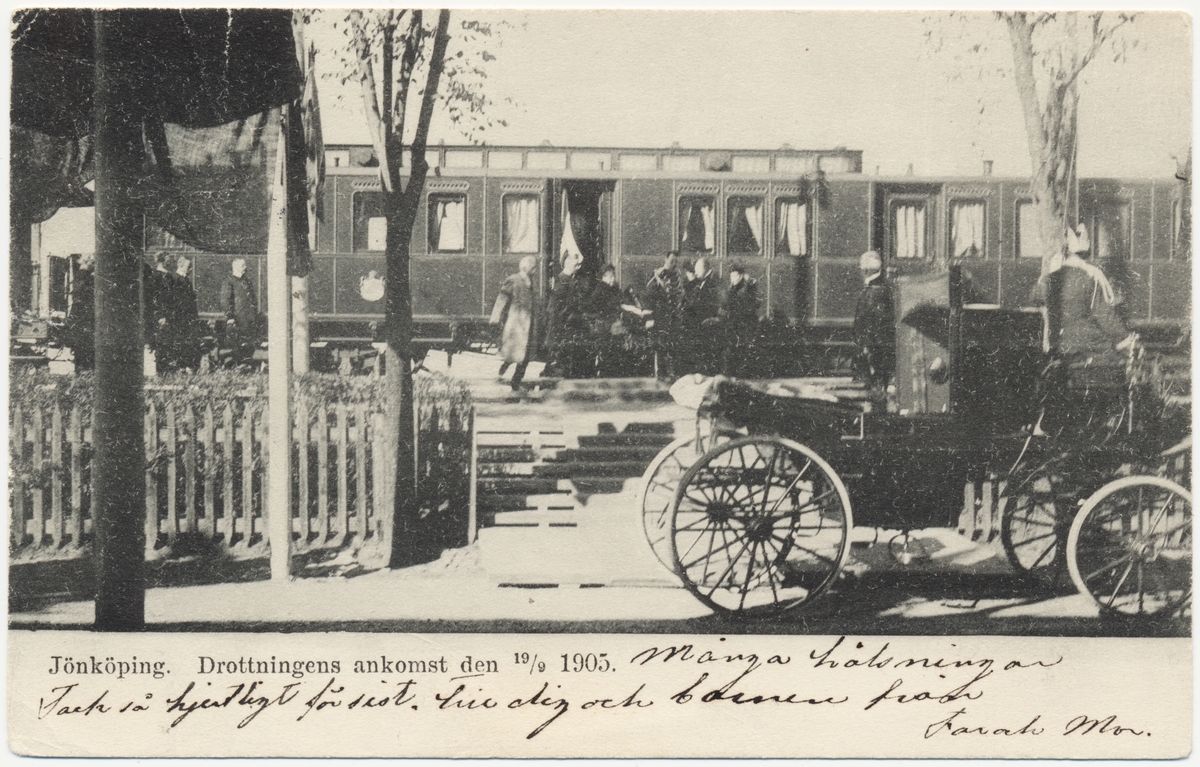 Jönköping. Drottningens ankomst den 19/9 1905. Många hälsningar
Tack så hjertligt för sist. till dig och barnen från
Farah Mor.